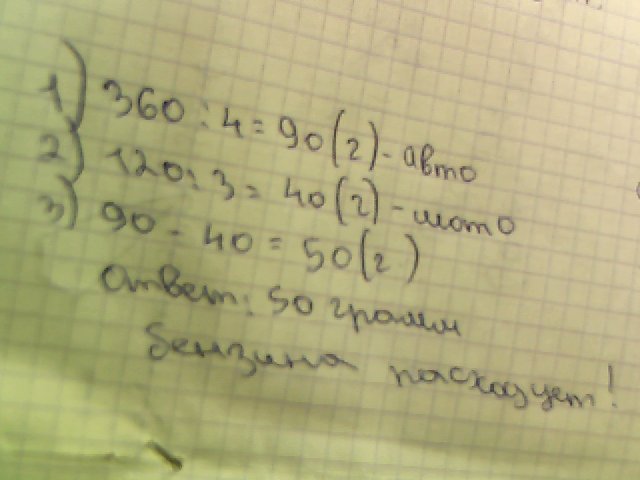 1) 360 : 4 = 90 (г) - авто
2) 120 : 3 = 40 (г) - мото
3) 90 - 40 = 50 (г)
Ответ: 50 грамм
бензина расходует!